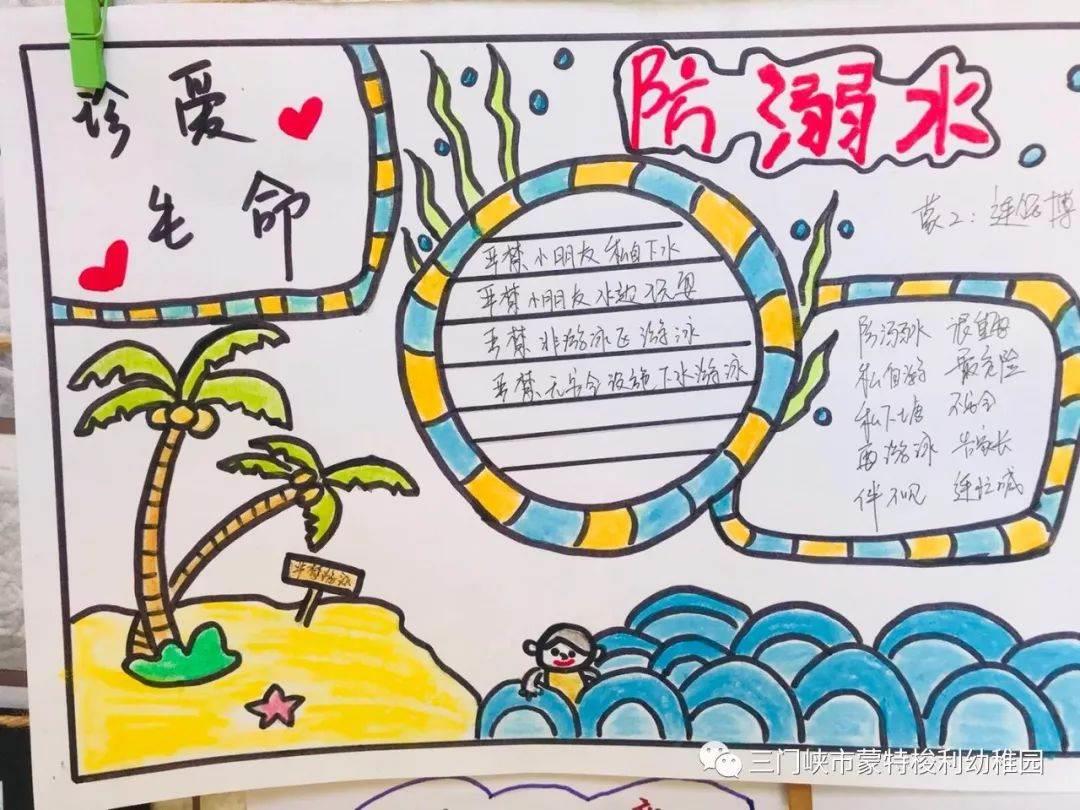 珍爱
生命
防溺水
蒙二：连
严禁小朋友私自下水
严禁小朋友水边玩耍
严禁非游泳区游泳
严禁无安全设施下水游泳
防溺水 很重要
私自游 最危险
私下塘 不安全
要游泳 告家长
伴不见 连忙喊
严禁游泳
三门峡市蒙特梭利幼稚园